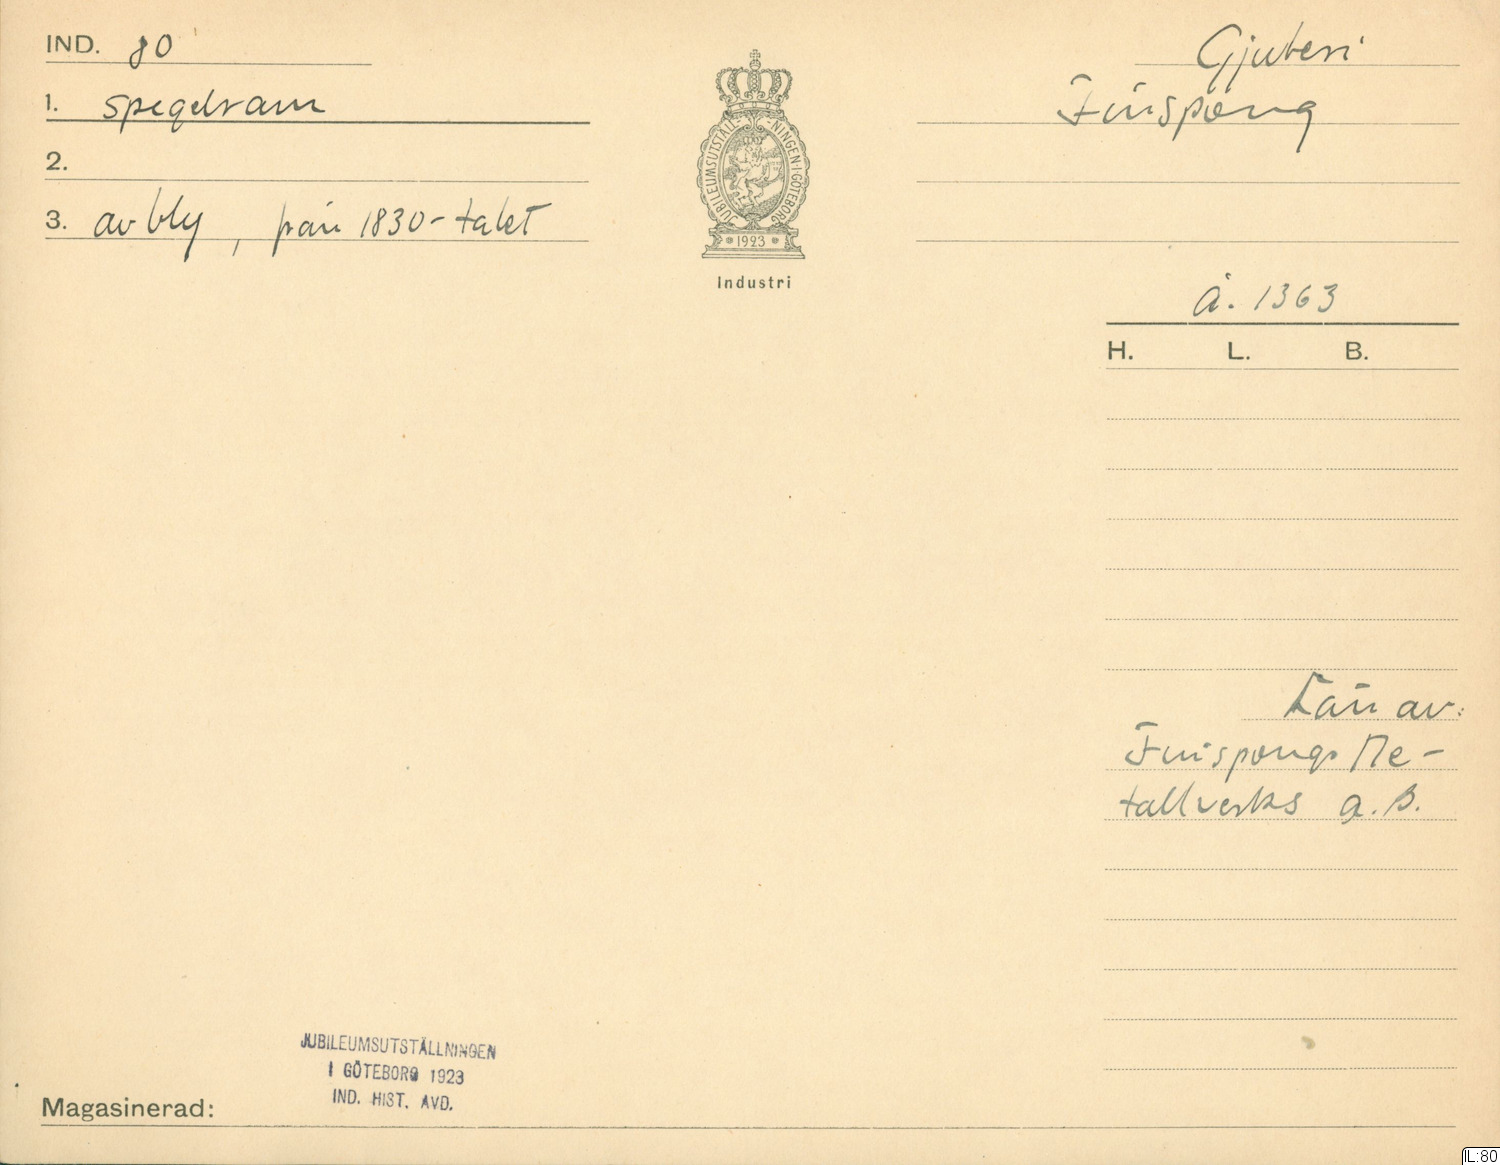 IND. 80
Gjuteri
1. Spegelram
Finspong
2.
3. av bly, från 1830-talet
JUBILEUMSUTSTÄLL-NINGEN·I·GÖTEBORG
1923
Industri
Å. 1363
H. L. B.
Lån av:
Finspongs Me-
tallverks a.B.
JUBILEUMSUTSTÄLLNINGEN
I GÖTEBORG 1923
IND. HIST. AVD.
Magasinerad:
IL:80